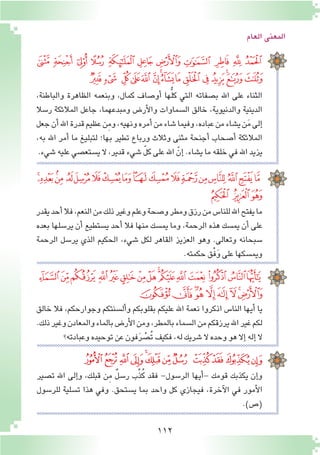 المعنى العام
ٱلۡحَمۡدُ لِلَّهِ فَاطِرِ ٱلسَّمَٰوَٰتِ وَٱلۡأَرۡضِ جَاعِلِ ٱلۡمَلَٰٓئِكَةِ رُسُلًا أُوْلِيٓ أَجۡنِحَةٖ مَّثۡنَىٰ
وَثُلَٰثَ وَرُبَٰعَۚ يَزِيدُ فِي ٱلۡخَلۡقِ مَا يَشَآءُۚ إِنَّ ٱللَّهَ عَلَىٰ كُلِّ شَيۡءٖ قَدِيرٞ
الثناء على الله بصفاته التي كلُّها أوصاف كمال، وبنعمه الظاهرة والباطنة،
الدينية والدنيوية، خالق السماوات والأرض ومبدعهما، جاعل الملائكة رسلا
إلى مَن يشاء من عباده، وفيما شاء من أمره ونهيه، ومِن عظيم قدرة الله أن جعل
الملائكة أصحاب أجنحة مثنى وثلاث ورباع تطير بها؛ لتبليغ ما أمر الله به،
يزيد الله في خلقه ما يشاء. إنَّ الله على كل شيء قدير، لا يستعصي عليه شيء.
مَّا يَفۡتَحِ ٱللَّهُ لِلنَّاسِ مِن رَّحۡمَةٖ فَلَا مُمۡسِكَ لَهَاۖ وَمَا يُمۡسِكۡ فَلَا مُرۡسِلَ لَهُۥ مِنۢ بَعۡدِهِۦۚ
وَهُوَ ٱلۡعَزِيزُ ٱلۡحَكِيمُ
ما يفتح الله للناس من رزق ومطر وصحة وعلم وغير ذلك من النعم، فلا أحد يقدر
على أن يمسك هذه الرحمة، وما يمسك منها فلا أحد يستطيع أن يرسلها بعده
سبحانه وتعالى. وهو العزيز القاهر لكل شيء، الحكيم الذي يرسل الرحمة
ويمسكها على وَفْق حكمته.
يَٰٓأَيُّهَا ٱلنَّاسُ ٱذۡكُرُواْ نِعۡمَتَ ٱللَّهِ عَلَيۡكُمۡۚ هَلۡ مِنۡ خَٰلِقٍ غَيۡرُ ٱللَّهِ يَرۡزُقُكُم مِّنَ ٱلسَّمَآءِ
وَٱلۡأَرۡضِۚ لَآ إِلَٰهَ إِلَّا هُوَۖ فَأَنَّىٰ تُؤۡفَكُونَ
يا أيها الناس اذكروا نعمة الله عليكم بقلوبكم وألسنتكم وجوارحكم، فلا خالق
لكم غير الله يرزقكم من السماء بالمطر، ومن الأرض بالماء والمعادن وغير ذلك.
لا إله إلا هو وحده لا شريك له، فكيف تُصْرَفون عن توحيده وعبادته؟
وَإِن يُكَذِّبُوكَ فَقَدۡ كُذِّبَتۡ رُسُلٞ مِّن قَبۡلِكَۚ وَإِلَى ٱللَّهِ تُرۡجَعُ ٱلۡأُمُورُ
وإن يكذبك قومك -أيها الرسول- فقد كُذِّب رسلٌ من قبلك، وإلى الله تصير
الأمور في الآخرة، فيجازي كل واحد بما يستحق. وفي هذا تسلية للرسول
(ص).
١١٢